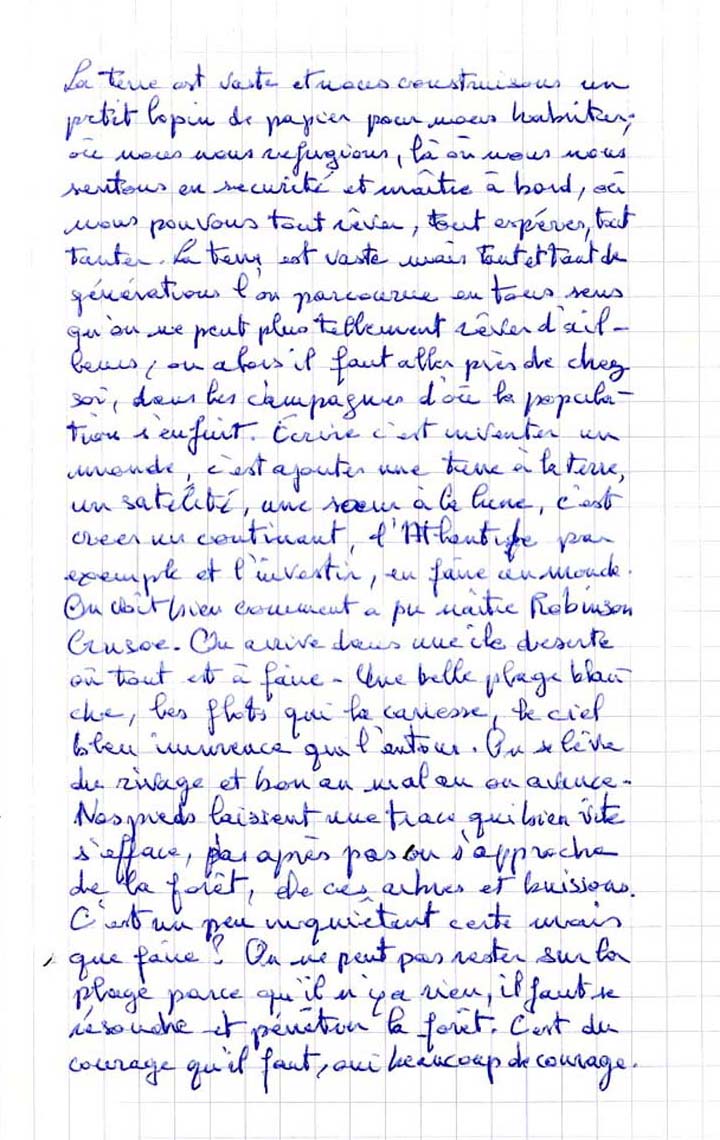 La terre est vaste et nous construisons un
petit lopin de papier pour nous habriter,
où nous nous refugions, là où nous nous
sentons en securité et maître à bord, où
nous pouvons tout rêver, tout espérer, tout
tanter. La terre est vaste mais tant et tant de
générations l'on parcourue en tous sens
qu'on ne peut plus tellement rêver d'ail-
leurs, ou alors il faut aller près de chez
soi, dans les campagnes d'où la popula-
tion s'enfuit. Écrire c'est inventer un
monde, c'est ajouter une terre à la terre,
un satellite, une sœur à la lune, c'est
creer un continant, l'Athlantide par
exemple et l'investir, en faire un monde.
On voit bien comment a pu naître Robinson
Crusoe. On arrive dans une île deserte
où tout est à faire - Une belle plage blan
che, les flots qui la caresse, le ciel
bleu immence qui l'entour. On se lève
du rivage et bon an mal an on avance -
Nos pieds laissent une trace qui bien vite
s'efface, pas après pas on s'approche
de la forêt, de ces arbres et buissons.
C'est un peu inquiètant certe mais
que faire ? On ne peut pas rester sur la
plage parce qu'il n'y a rien, il faut se
résoudre et pénétrer la forêt. C'est du
courage qu'il faut, oui beaucoup de courage.